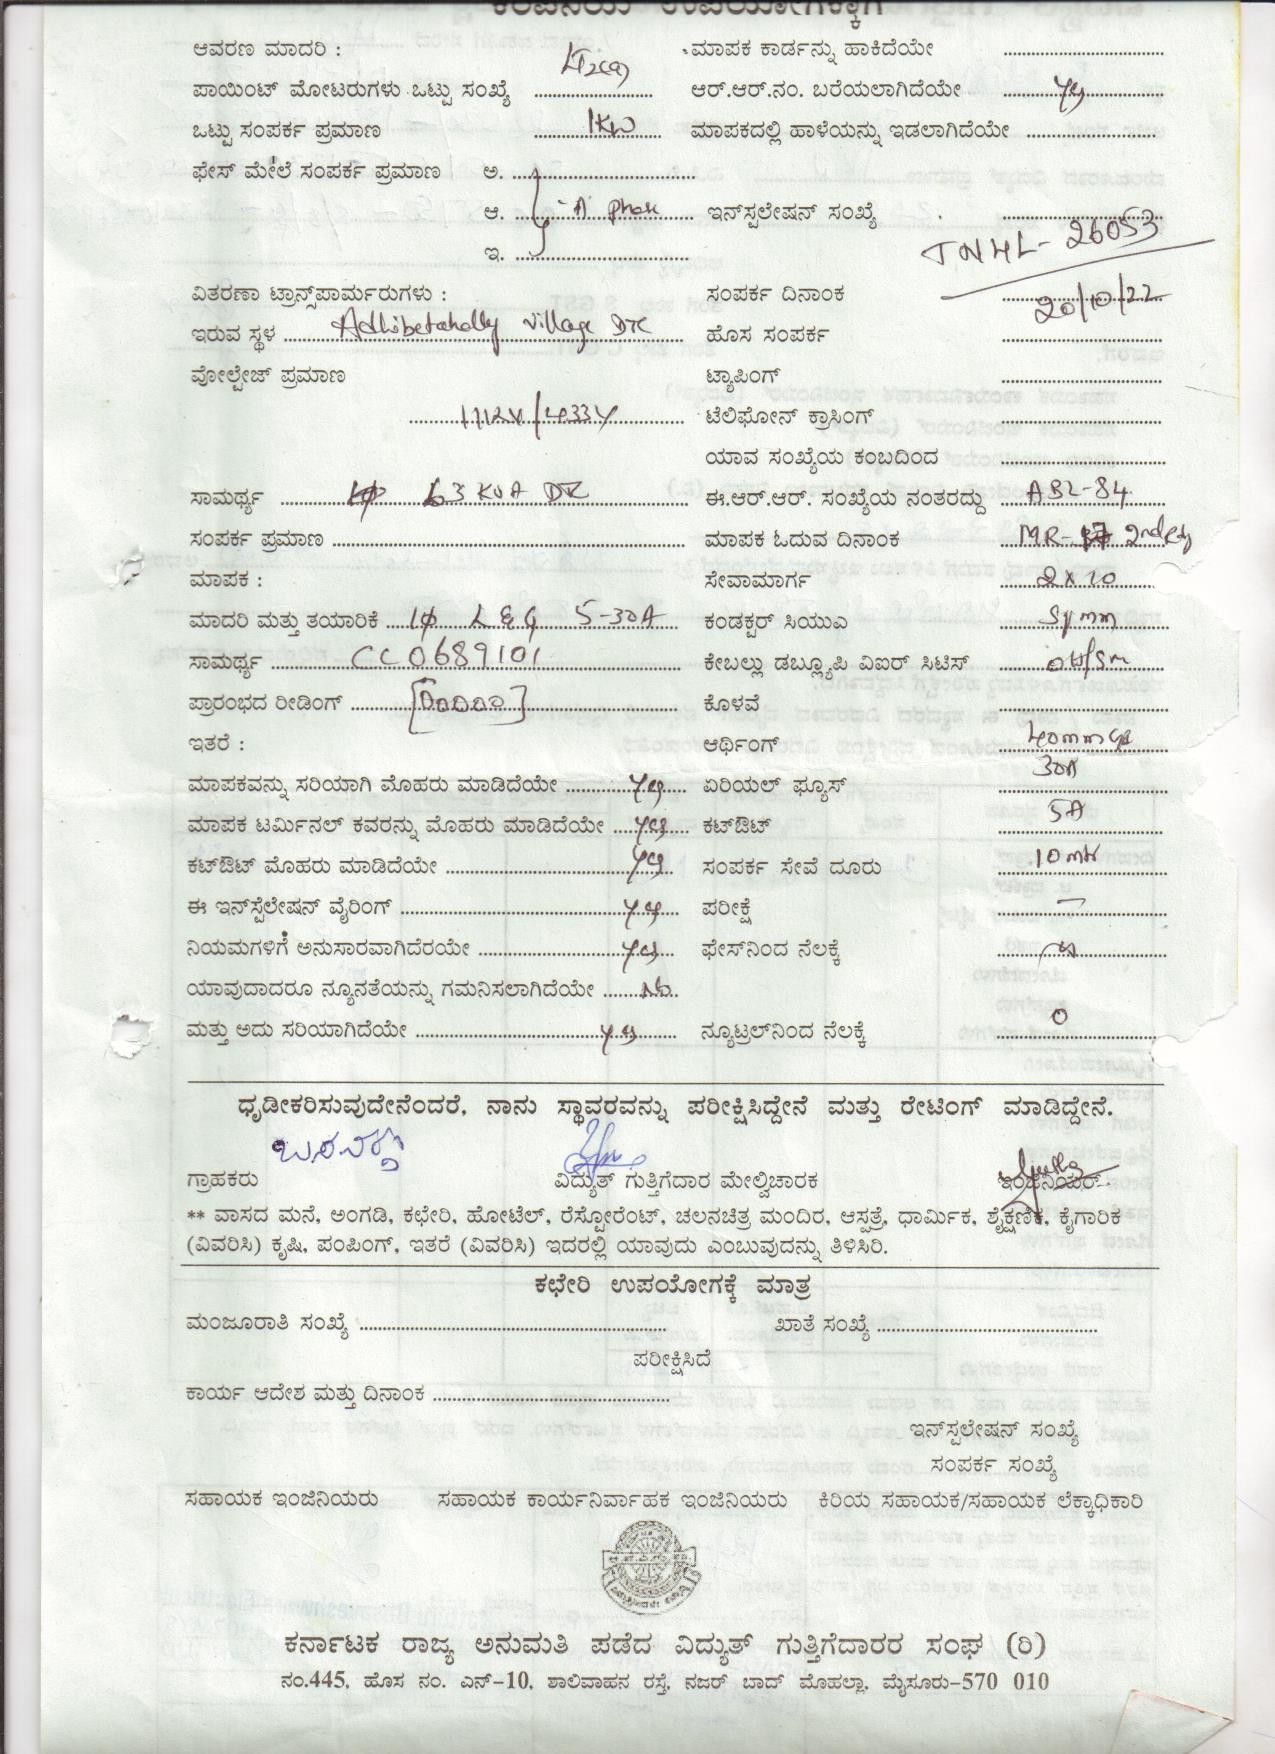 ಕಂಪನಿಯ ಉಪಯೋಗಕ್ಕಾಗಿ
ಆವರಣ ಮಾದರಿ : LT2(a) ಮಾಪಕ ಕಾರ್ಡನ್ನು ಹಾಕಿದೆಯೇ
ಪಾಯಿಂಟ್ ಮೋಟರುಗಳು ಒಟ್ಟು ಸಂಖ್ಯೆ ಆರ್.ಆರ್.ನಂ. ಬರೆಯಲಾಗಿದೆಯೇ yes
ಒಟ್ಟು ಸಂಪರ್ಕ ಪ್ರಮಾಣ 1KW ಮಾಪಕದಲ್ಲಿ ಹಾಳೆಯನ್ನು ಇಡಲಾಗಿದೆಯೇ
ಫೇಸ್ ಮೇಲೆ ಸಂಪರ್ಕ ಪ್ರಮಾಣ ಅ.
ಆ. ಇನ್‌ಸ್ಪಲೇಷನ್ ಸಂಖ್ಯೆ TNHL-26053
ಇ.
ವಿತರಣಾ ಟ್ರಾನ್ಸ್‌ಪಾರ್ಮರುಗಳು : ಸಂಪರ್ಕ ದಿನಾಂಕ 20/10/22
ಇರುವ ಸ್ಥಳ Adhibetahally Village DTC ಹೊಸ ಸಂಪರ್ಕ
ವೋಲ್ಟೇಜ್ ಪ್ರಮಾಣ ಟ್ಯಾಪಿಂಗ್
ಟೆಲಿಫೋನ್ ಕ್ರಾಸಿಂಗ್
ಯಾವ ಸಂಖ್ಯೆಯ ಕಂಬದಿಂದ
ಸಾಮರ್ಥ್ಯ 63 KVA DTC ಈ.ಆರ್.ಆರ್. ಸಂಖ್ಯೆಯ ನಂತರದ್ದು ABL-84
ಸಂಪರ್ಕ ಪ್ರಮಾಣ ಮಾಪಕ ಓದುವ ದಿನಾಂಕ
ಮಾಪಕ : ಸೇವಾಮಾರ್ಗ 2x10
ಮಾದರಿ ಮತ್ತು ತಯಾರಿಕೆ 1φ L&G 5-30A ಕಂಡಕ್ಟರ್ ಸಿಯುಎ
ಸಾಮರ್ಥ್ಯ CC0689101 ಕೇಬಲ್ಲು ಡಬ್ಲ್ಯೂಪಿ ವಿಐಆರ್ ಸಿಟಿಸ್
ಪ್ರಾರಂಭದ ರೀಡಿಂಗ್ [00000] ಕೊಳವೆ
ಇತರೆ : ಆರ್ಥಿಂಗ್
ಮಾಪಕವನ್ನು ಸರಿಯಾಗಿ ಮೊಹರು ಮಾಡಿದೆಯೇ yes ಏರಿಯಲ್ ಫ್ಯೂಸ್ 30A
ಮಾಪಕ ಟರ್ಮಿನಲ್ ಕವರನ್ನು ಮೊಹರು ಮಾಡಿದೆಯೇ yes ಕಟ್‌ಔಟ್ 5A
ಕಟ್‌ಔಟ್ ಮೊಹರು ಮಾಡಿದೆಯೇ yes ಸಂಪರ್ಕ ಸೇವೆ ದೂರು 10mtr
ಈ ಇನ್‌ಸ್ಪೆಲೇಷನ್ ವೈರಿಂಗ್ yes ಪರೀಕ್ಷೆ -
ನಿಯಮಗಳಿಗೆ ಅನುಸಾರವಾಗಿದೆರಯೇ yes ಫೇಸ್‌ನಿಂದ ನೆಲಕ್ಕೆ
ಯಾವುದಾದರೂ ನ್ಯೂನತೆಯನ್ನು ಗಮನಿಸಲಾಗಿದೆಯೇ No
ಮತ್ತು ಅದು ಸರಿಯಾಗಿದೆಯೇ yes ನ್ಯೂಟ್ರಲ್‌ನಿಂದ ನೆಲಕ್ಕೆ 0
ಧೃಡೀಕರಿಸುವುದೇನೆಂದರೆ, ನಾನು ಸ್ಥಾವರವನ್ನು ಪರೀಕ್ಷಿಸಿದ್ದೇನೆ ಮತ್ತು ರೇಟಿಂಗ್ ಮಾಡಿದ್ದೇನೆ.
ಗ್ರಾಹಕರು ವಿದ್ಯುತ್ ಗುತ್ತಿಗೆದಾರ ಮೇಲ್ವಿಚಾರಕ ಇಂಜಿನಿಯರ್
** ವಾಸದ ಮನೆ, ಅಂಗಡಿ, ಕಛೇರಿ, ಹೋಟೆಲ್, ರೆಸ್ಟೋರೆಂಟ್, ಚಲನಚಿತ್ರ ಮಂದಿರ, ಆಸ್ಪತ್ರೆ, ಧಾರ್ಮಿಕ, ಶೈಕ್ಷಣಿಕ, ಕೈಗಾರಿಕ
(ವಿವರಿಸಿ) ಕೃಷಿ, ಪಂಪಿಂಗ್, ಇತರೆ (ವಿವರಿಸಿ) ಇದರಲ್ಲಿ ಯಾವುದು ಎಂಬುವುದನ್ನು ತಿಳಿಸಿರಿ.
ಕಛೇರಿ ಉಪಯೋಗಕ್ಕೆ ಮಾತ್ರ
ಮಂಜೂರಾತಿ ಸಂಖ್ಯೆ ಖಾತೆ ಸಂಖ್ಯೆ
ಪರೀಕ್ಷಿಸಿದೆ
ಕಾರ್ಯ ಆದೇಶ ಮತ್ತು ದಿನಾಂಕ
ಇನ್‌ಸ್ಪಲೇಷನ್ ಸಂಖ್ಯೆ
ಸಂಪರ್ಕ ಸಂಖ್ಯೆ
ಸಹಾಯಕ ಇಂಜಿನಿಯರು ಸಹಾಯಕ ಕಾರ್ಯನಿರ್ವಾಹಕ ಇಂಜಿನಿಯರು ಕಿರಿಯ ಸಹಾಯಕ/ಸಹಾಯಕ ಲೆಕ್ಕಾಧಿಕಾರಿ
ಕರ್ನಾಟಕ ರಾಜ್ಯ ಅನುಮತಿ ಪಡೆದ ವಿದ್ಯುತ್ ಗುತ್ತಿಗೆದಾರರ ಸಂಘ (ರಿ)
ನಂ.445, ಹೊಸ ನಂ. ಎನ್-10, ಶಾಲಿವಾಹನ ರಸ್ತೆ, ನಜರ್ ಬಾದ್ ಮೊಹಲ್ಲಾ, ಮೈಸೂರು-570 010